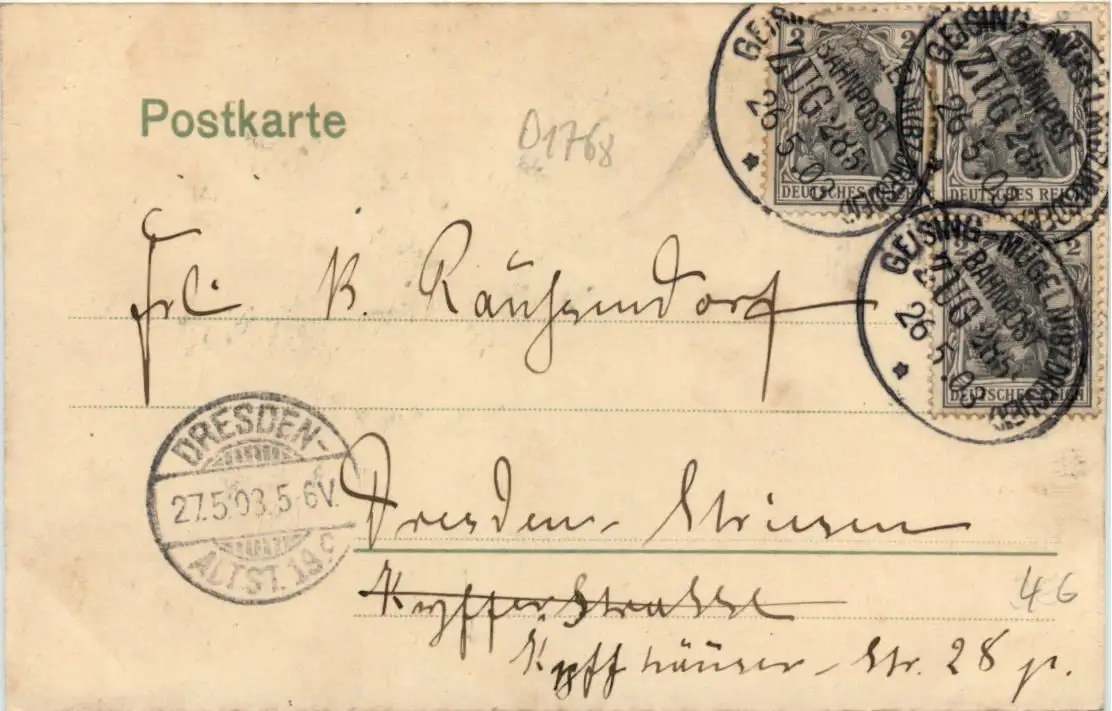 Postkarte
D1768
2 2
DEUTSCHES REICH
GEISING-MÜGELN(BZ.DRESDEN)
BAHNPOST
ZUG 285
26 5.03
2 2
DEUTSCHES REICH
GEISING-MÜGELN(BZ.DRESDEN)
BAHNPOST
ZUG 285
26 5.03
2
DEUTSCHES REICH
GEISING-MÜGELN(BZ.DRESDEN)
BAHNPOST
ZUG 285
26 5.03
Frl. K.
DRESDEN-
27.5.03.5-6V.
ALTST. 19.c
Dresden-Striesen
Kypffer Strasse
46
Kypffhäuser-Str. 28 p.